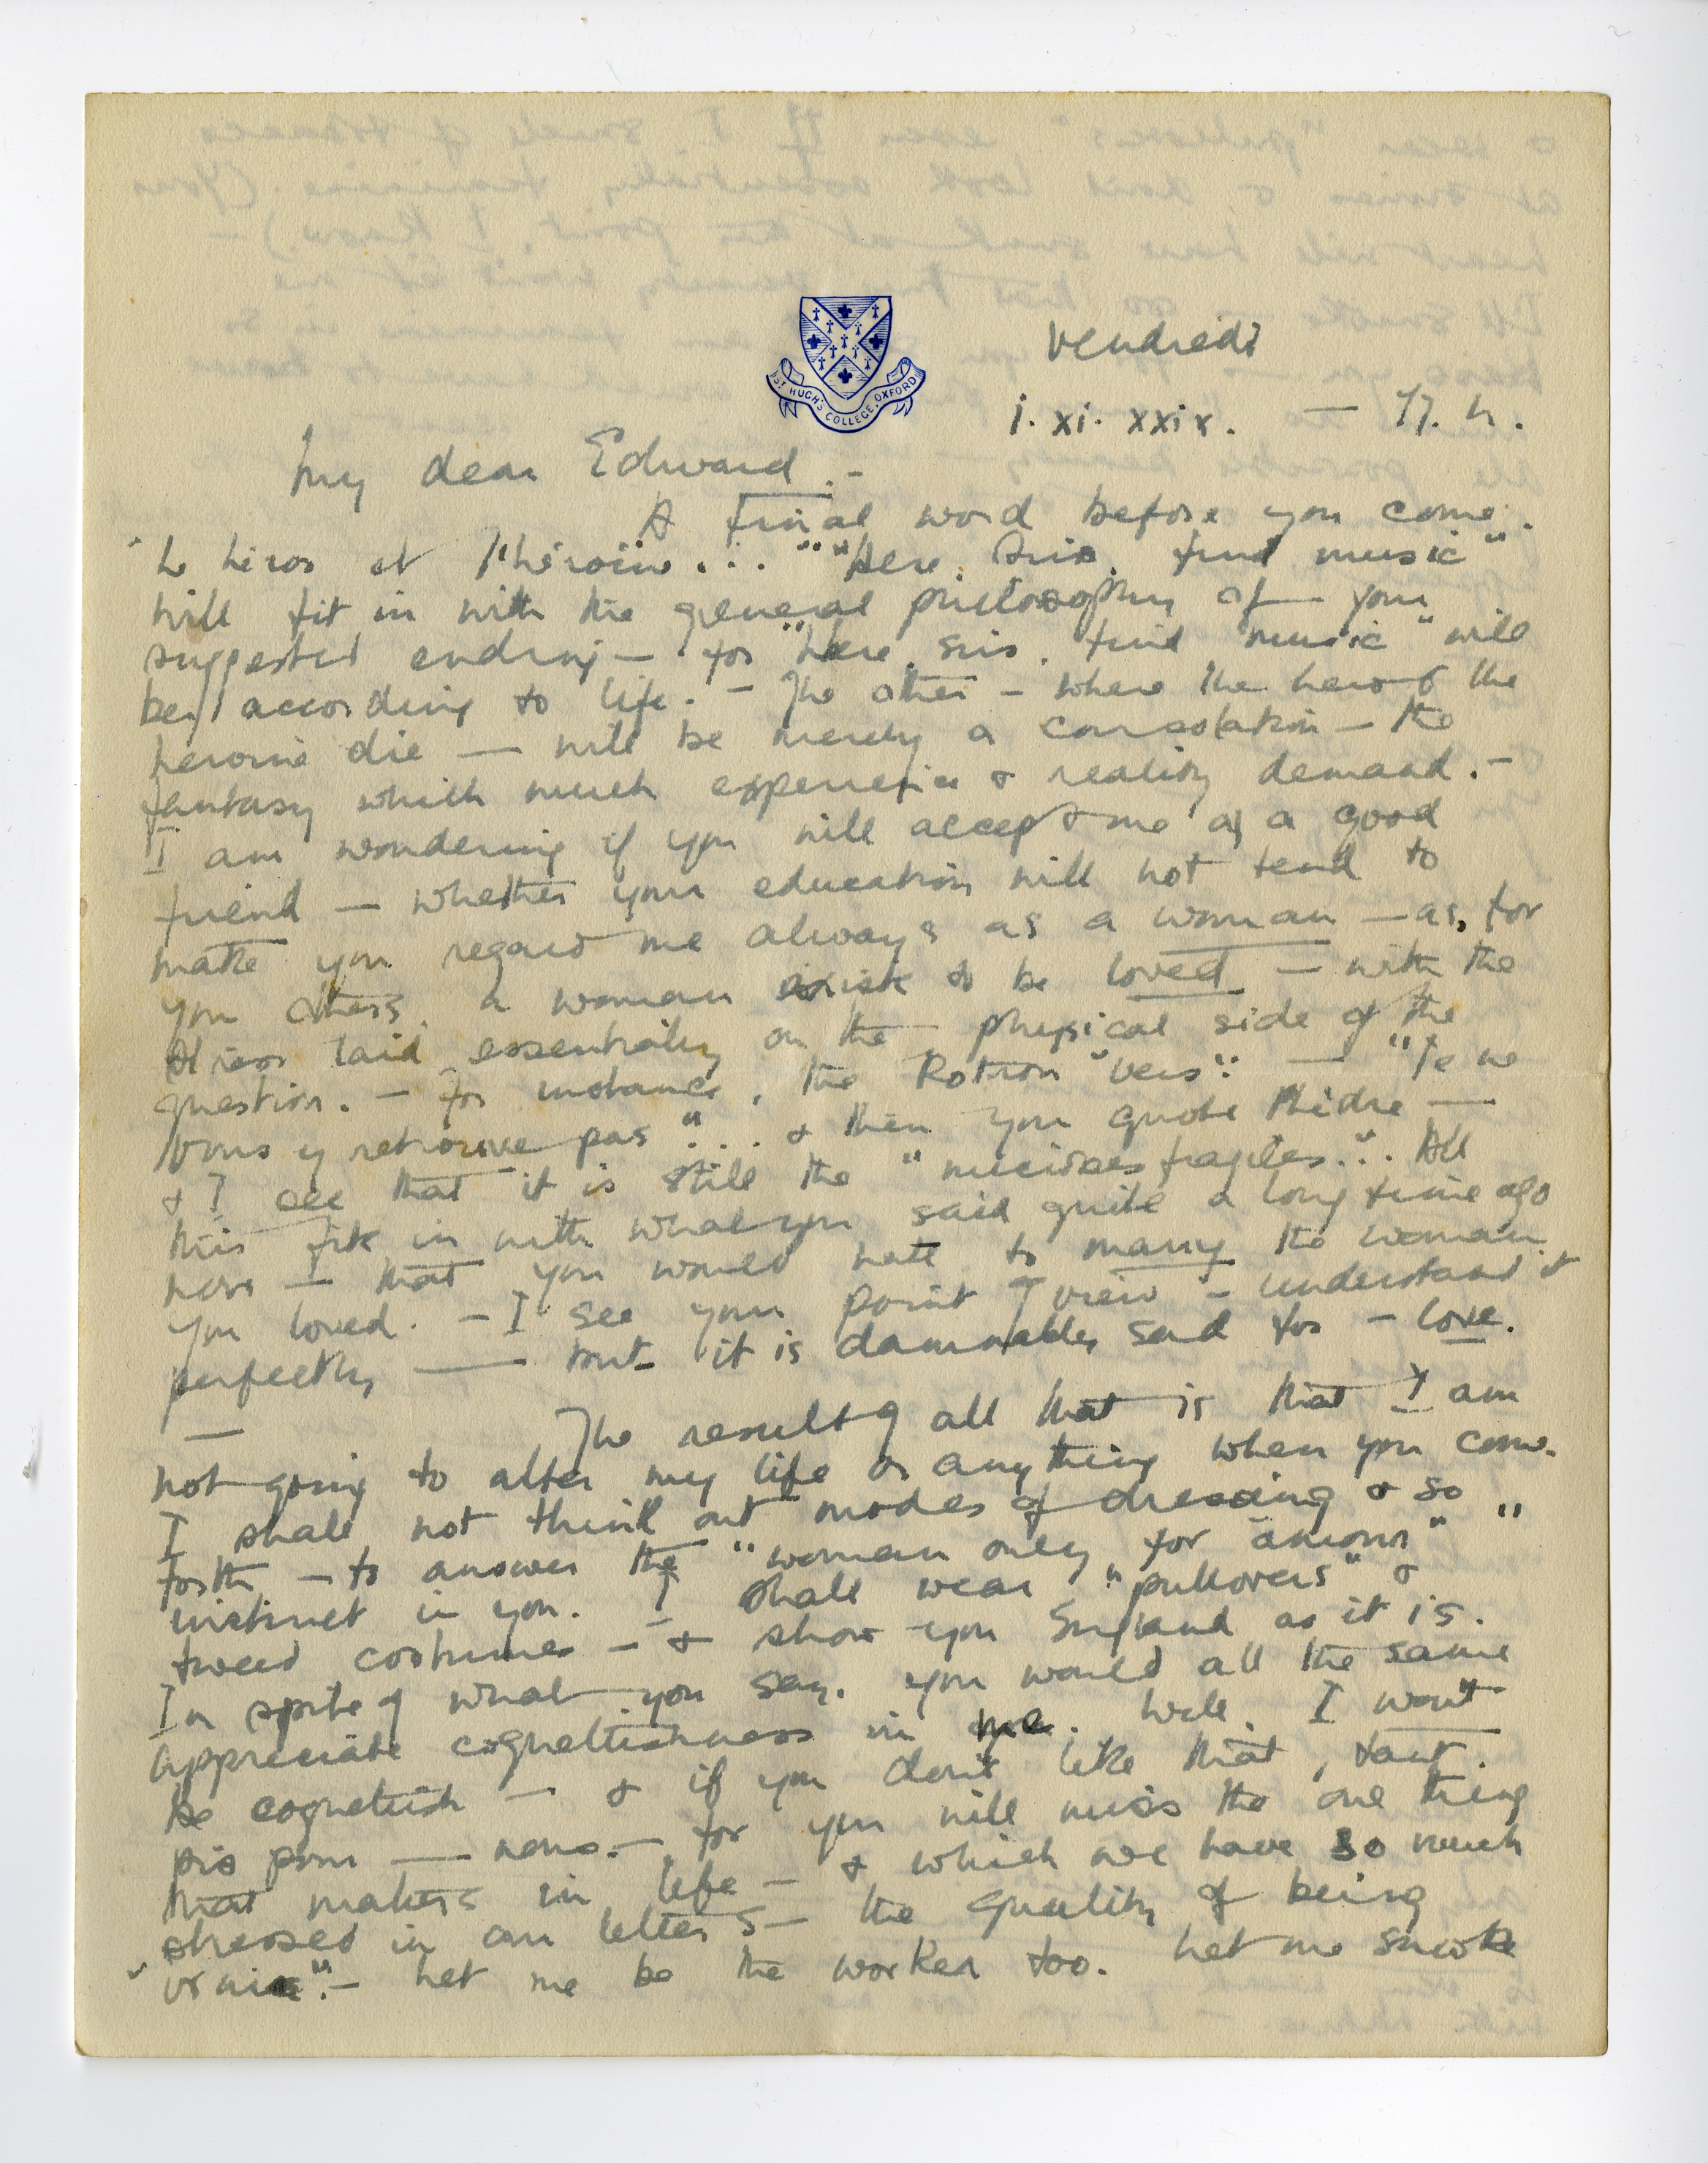 ST HUGH'S COLLEGE, OXFORD
Vendredi
1. xi. xxix. — 17. h.
My dear Edward. -
A final word before you come.
"Le héros et l'héroïne..." "Here, Sir, find music"
will fit in with the general philosophy of your
suggested ending — for "Here, Sir, find music" will
be according to life. - The other - where the hero & the
heroine die — will be merely a consolation — the
fantasy which much experience & reality demand. -
I am wondering if you will accept me as a good
friend — whether your education will not tend to
make you regard me always as a woman — as, for
you others, a woman exists to be loved — with the
stress laid essentially on the physical side of the
question. - For instance, the Rotrou "vers": — "Je ne
vous y retrouve pas"... & then you quote Phèdre —
& I see that it is still the fragiles". All
this fits in with what you said quite a long time ago
now — that you would hate to marry the woman
you loved. - I see your point of view - understand it
perfectly — but it is damnably sad for - love.
— The result of all that is that I am
not going to alter my life or anything when you come.
I shall not think out modes of dressing & so
forth — to answer the "woman only for amour"
instinct in you. I shall wear "pullovers" &
tweed costumes - & show you England as it is.
In spite of what you say, you would all the same
appreciate coquettishness in me. Well, I won't
be coquettish — & if you don't like that, tant
pis pour — vous. — for you will miss the one thing
that matters in life — & which we have so much
stressed in our letters — the quality of being
"vraie". — Let me be the worker too. Let me smoke